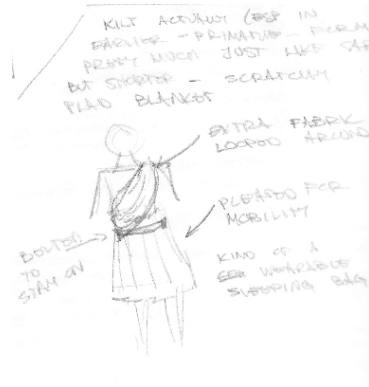 KILT ACTUALLY (ESP IN
EARLIER - PRIMATIVE - FORM
PRETTY MUCH JUST LIKE SAR
BUT SHORTER - SCRATCHY
PLAID BLANKET
EXTRA FABRIC
LOOPED AROUND
PLEATED FOR
MOBILITY
BELTED
TO
STAY ON
KIND OF A
WEARABLE
SLEEPING BAG